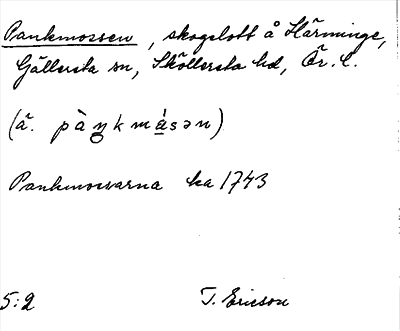 Pankmossen, skogslott å Härminge,
Gällersta sn, Sköllersta hd, Ör. l.
(ä. pàŋkmásən)
Pankmossarna ka 1743
5:2 T. Ericson